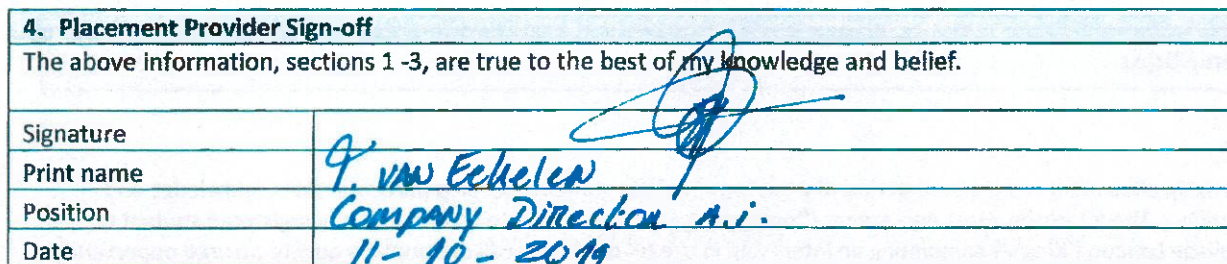 4. Placement Provider Sign-off
The above information, sections 1 -3, are true to the best of my knowledge and belief.
Signature
Print name
VAN Eekelen
Position
COMPANY Director A.i.
Date
11-10-2019